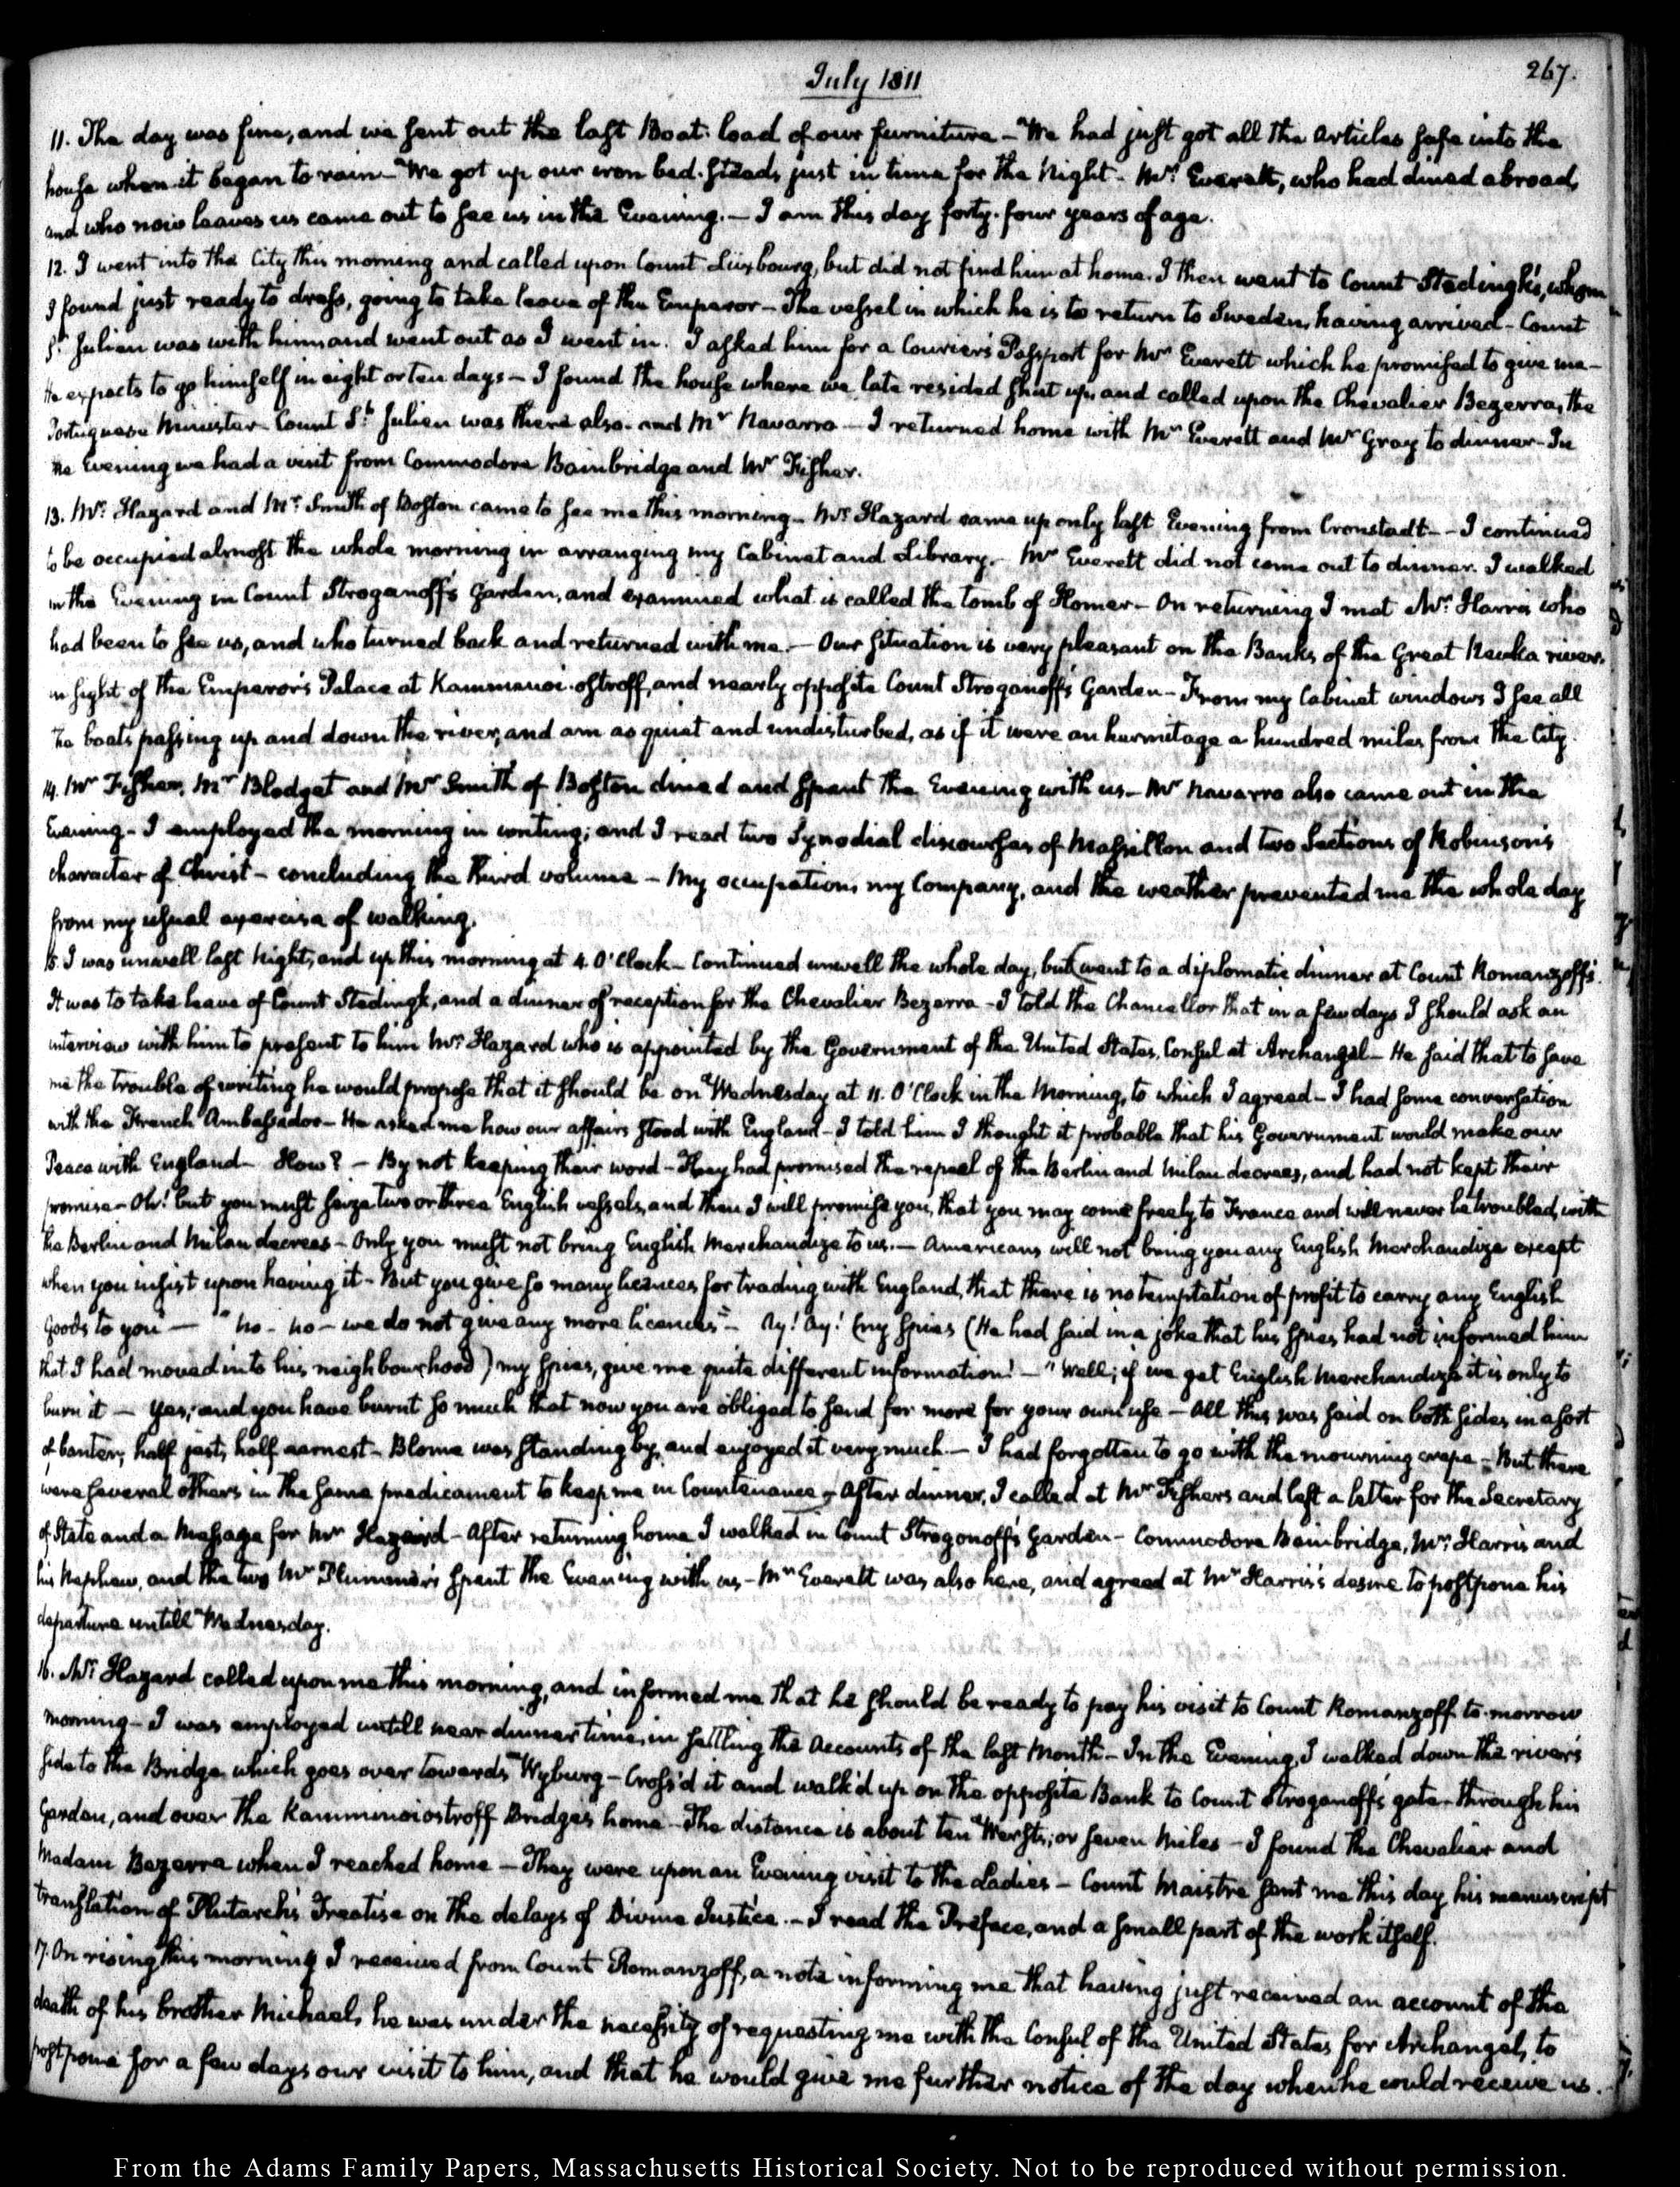 July 1811
267.
11. The day was fine, and we sent out the last Boat-load of our furniture — We had just got all the articles safe into the
house when it began to rain — We got up our iron bed-steads just in time for the Night — Mr. Everett, who had dined abroad,
and who now leaves us came out to see us in the Evening. — I am this day forty-four years of age.
12. I went into the City this morning and called upon Count Luxbourg, but did not find him at home. I then went to Count Stedingk's, whom
I found just ready to dress, going to take leave of the Emperor — The vessel in which he is to return to Sweden, having arrived — Count
St. Julien was with him, and went out as I went in. I asked him for a Courier's Passport for Mr Everett which he promised to give me —
He expects to go himself in eight or ten days — I found the house where we late resided shut up, and called upon the Chevalier Bezerra, the
Portuguese Minister — Count St. Julien was there also — and Mr Navarro — I returned home with Mr Everett and Mr Gray to dinner — In
the Evening we had a visit from Commodore Bainbridge and Mr Fisher.
13. Mr. Hazard and Mr. Smith of Boston came to see me this morning — Mr. Hazard came up only last Evening from Cronstadt — I continued
to be occupied almost the whole morning in arranging my Cabinet and Library. — Mr Everett did not come out to dinner. I walked
in the Evening in Count Stroganoff's Garden, and examined what is called the tomb of Homer — On returning I met Mr. Harris who
had been to see us, and who turned back and returned with me. — Our situation is very pleasant on the Banks of the Great Nevka river,
in sight of the Emperor's Palace at Kammenoi-ostroff, and nearly opposite Count Stroganoff's Garden — From my Cabinet windows I see all
the boats passing up and down the river, and am as quiet and undisturbed, as if it were an hermitage a hundred miles from the City.
14. Mr Fisher, Mr Blodget and Mr Smith of Boston dined and spent the Evening with us — Mr Navarro also came out in the
Evening — I employed the morning in writing; and I read two Synodial discourses of Massillon and two Sections of Robinson's
character of Christ — concluding the third volume — My occupations, my Company, and the weather prevented me the whole day
from my usual exercise of walking.
15. I was unwell last Night, and up this morning at 4. O'Clock — Continued unwell the whole day, but went to a diplomatic dinner at Count Romanzoff's.
It was to take leave of Count Stedingk, and a dinner of reception for the Chevalier Bezerra — I told the Chancellor that in a few days I should ask an
interview with him to present to him Mr. Hazard who is appointed by the Government of the United States, Consul at Archangel — He said that to save
me the trouble of writing he would propose that it should be on Wednesday at 11. O'Clock in the Morning, to which I agreed — I had some conversation
with the French Ambassador — He asked me how our affairs stood with England — I told him I thought it probable that his Government would make our
Peace with England — How? — By not keeping their word — They had promised the repeal of the Berlin and Milan decrees, and had not kept their
promise — Oh! but you must seize two or three English vessels, and then I will promise you, that you may come freely to France and will never be troubled, with
the Berlin and Milan decrees — Only you must not bring English Merchandize to us. — Americans will not bring you any English Merchandize except
when you insist upon having it — But you give so many licences for trading with England, that there is no temptation of profit to carry any English
Goods to you" — "No — no — we do not give any more licences" — Ay! Ay! (my spies (He had said in a joke that his spies had not informed him
that I had moved into his neighbourhood) my spies, give me quite different information! — "Well; if we get English Merchandize it is only to
burn it — Yes; and you have burnt so much that now you are obliged to send for more for your own use — All this was said on both sides, in a sort
of banter; half jest, half earnest — Blome was standing by, and enjoyed it very much. — I had forgotten to go with the mourning crape — But there
were several others in the same predicament to keep me in Countenance — After dinner, I called at Mr Fisher's and left a letter for the Secretary
of State and a Message for Mr Hazard — After returning home I walked in Count Strogonoff's Garden — Commodore Bainbridge, Mr. Harris and
his Nephew, and the two Mr Plummer's spent the Evening with us — Mr Everett was also here, and agreed at Mr Harris's desire to postpone his
departure untill Wednesday.
16. Mr. Hazard called upon me this morning, and informed me that he should be ready to pay his visit to Count Romanzoff to-morrow
morning — I was employed untill near dinner time, in settling the Accounts of the last Month — In the Evening, I walked down the river's
side to the Bridge which goes over towards Wyburg — Cross'd it and walk'd up on the opposite Bank to Count Stroganoff's gate — through his
Garden, and over the Kamminoiostroff Bridges home — The distance is about ten Wersts; or seven Miles — I found the Chevalier and
Madam Bezerra when I reached home — They were upon an Evening visit to the Ladies — Count Maistre sent me this day his manuscript
translation of Plutarch's Treatise on the delays of Divine Justice. — I read the Preface, and a small part of the work itself.
17. On rising this morning I received from Count Romanzoff, a note informing me that having just received an account of the
death of his brother Michael, he was under the necessity of requesting me with the Consul of the United States for Archangel, to
postpone for a few days our visit to him, and that he would give me further notice of the day when he could receive us.
From the Adams Family Papers, Massachusetts Historical Society. Not to be reproduced without permission.